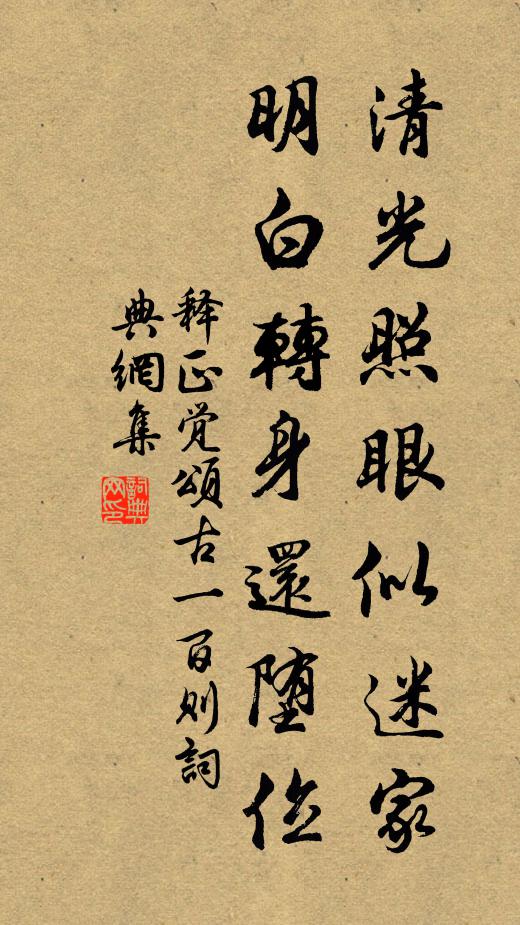 清光照眼似迷家
明白轉身還堕位
释正觉頌古一百则詞
典網集
詞典網印